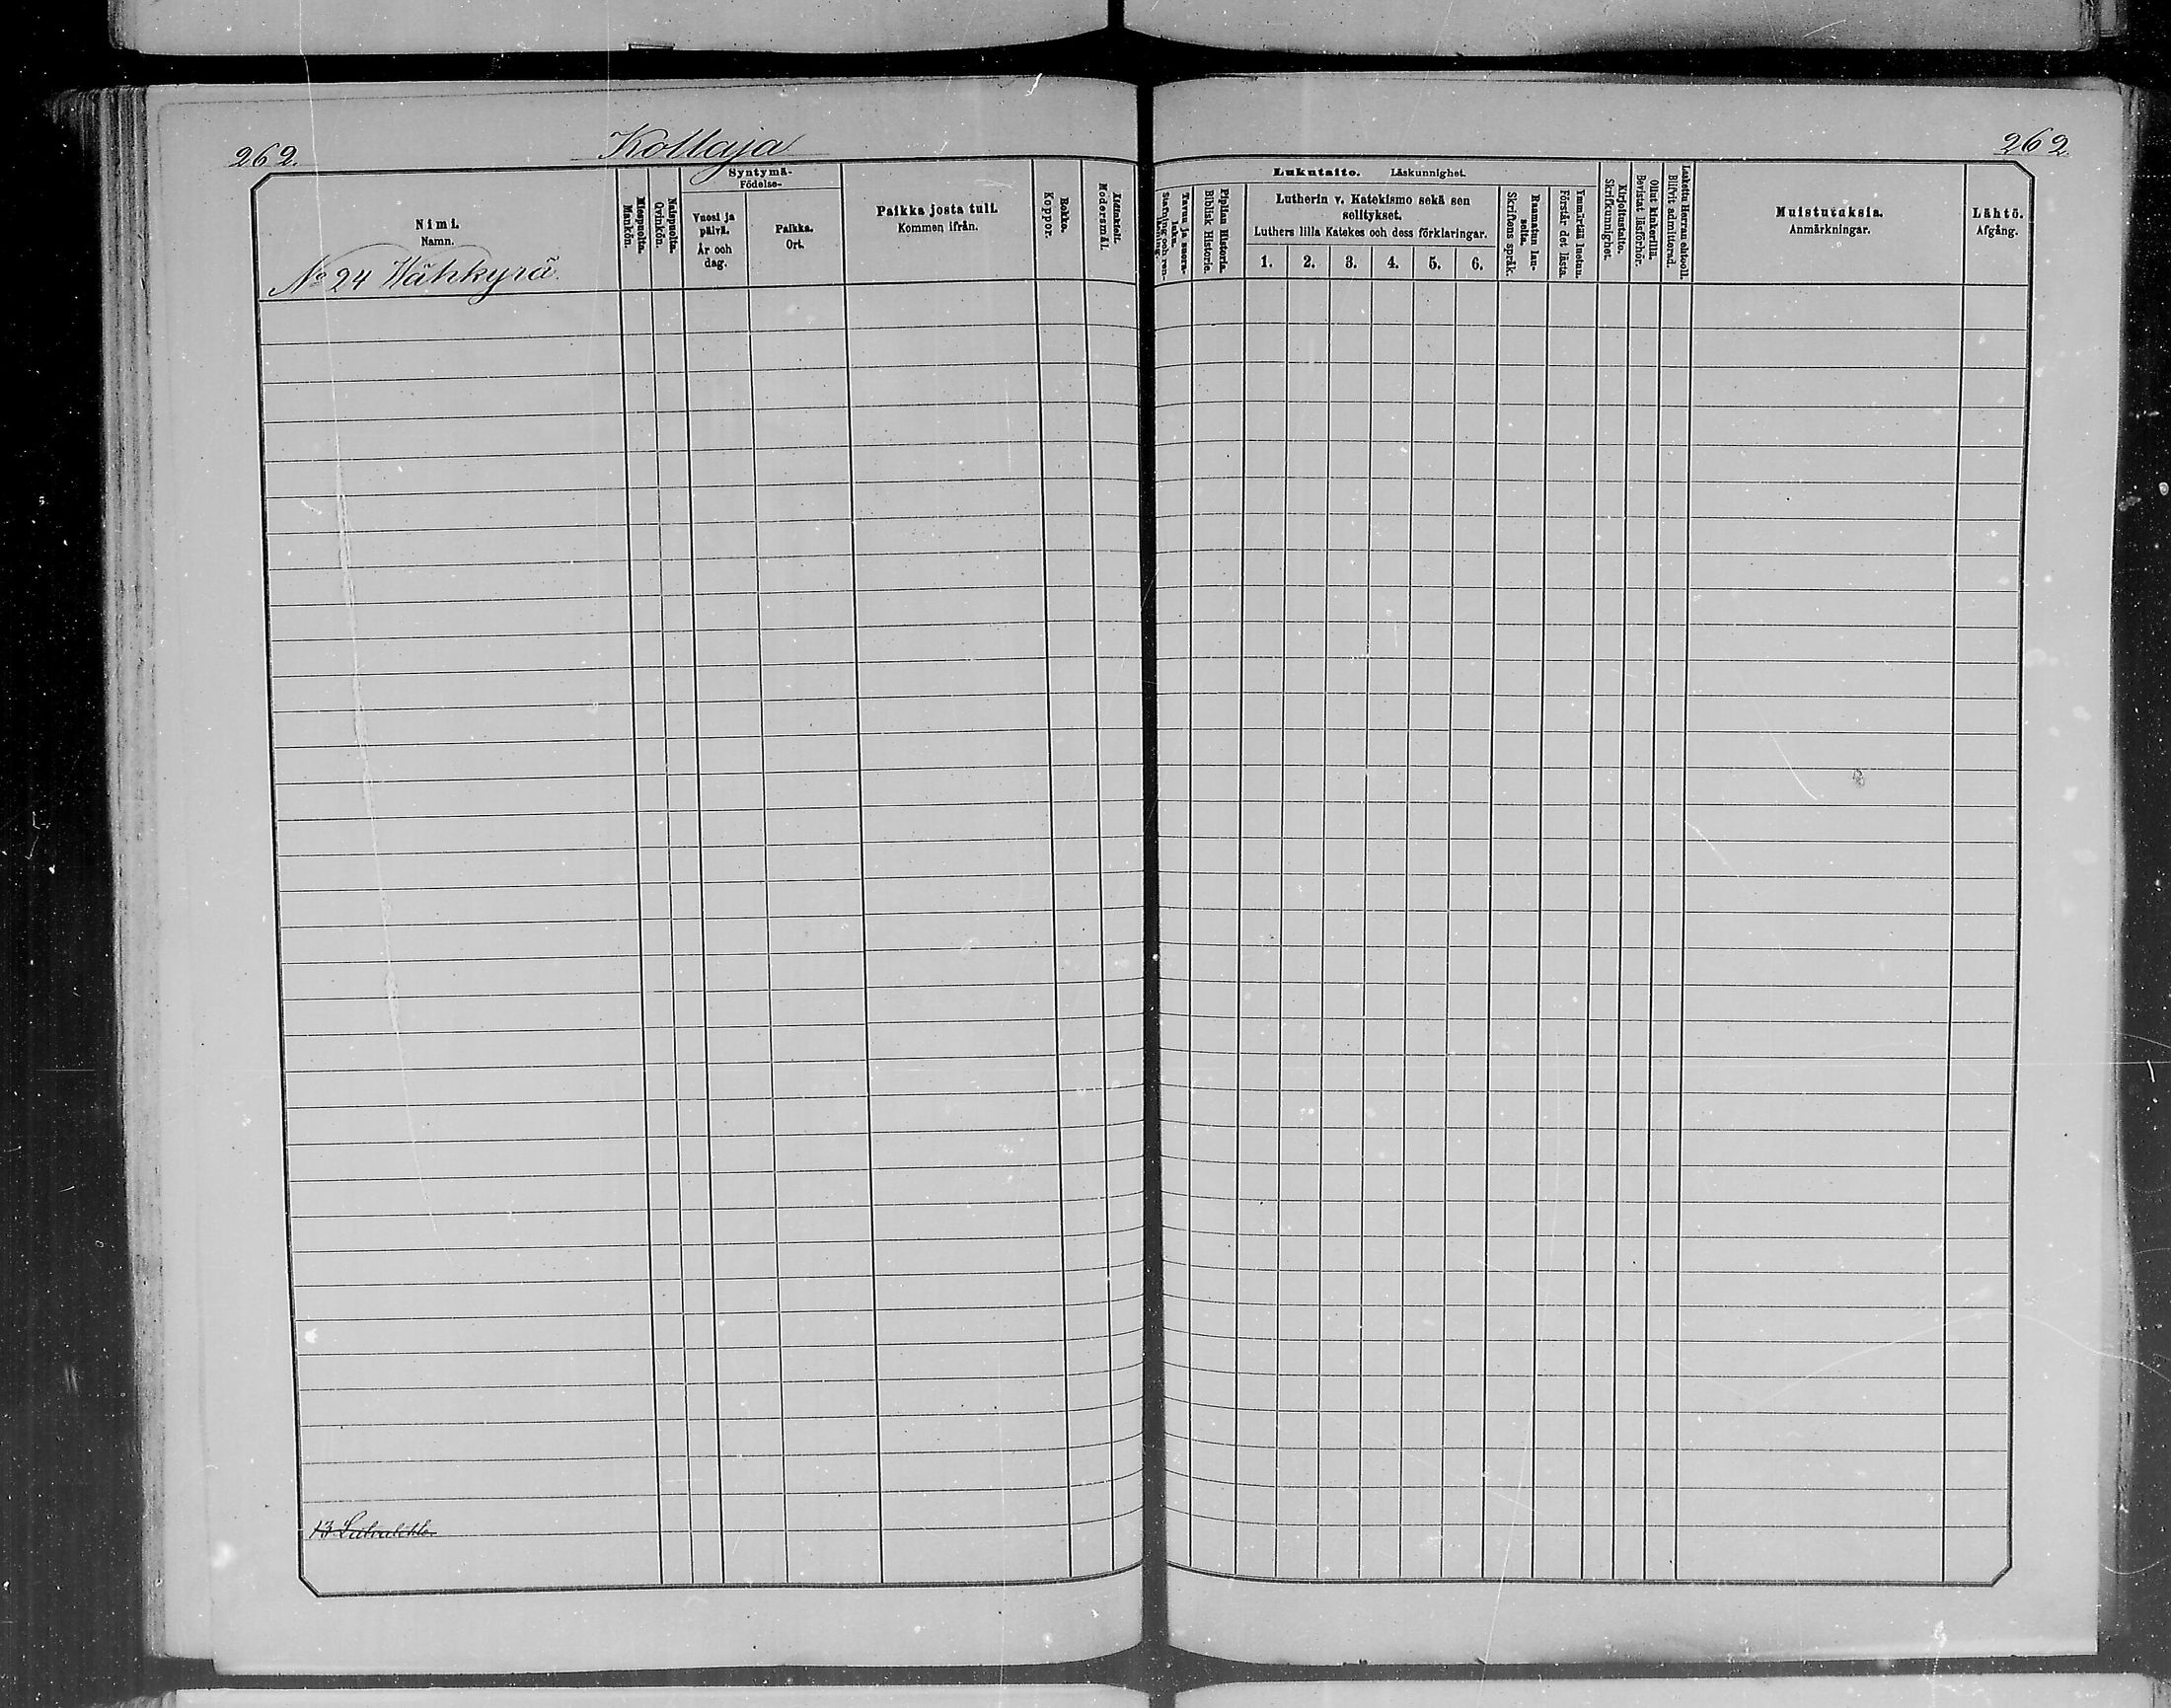 262.
Kollaja
262
Nimi.
Namn.
Miespuolta.
Mankön.
Naispuolta.
Qvinkön.
Syntymä-
Födelse-
Vuosi ja
päivä.
År och
dag.
Paikka.
Ort.
Paikka josta tuli.
Kommen ifrån.
Rokko.
Koppor.
Modersmål.
Lukutaito. Läskunnighet.
Tavuu ja suora-
luku.
Piplian Historia.
Biblisk Historie.
Lutherin v. Katekismo sekä sen
selitykset.
Luthers lilla Katekes och dess förklaringar.
1. 2. 3. 4. 5. 6.
Raamatun lau-
seita.
Skriftens språk.
Ymmärtää luetun.
Förstår det lästa.
Kirjoitustaito.
Skrifkunnighet.
Ollut kinkerillä.
Bevistat läsförhör.
Laskettu Herran ehtooll.
Blifvit admitterad.
Muistutuksia.
Anmärkningar.
Lähtö.
Afgång.
No 24 Wähkyrä.
13